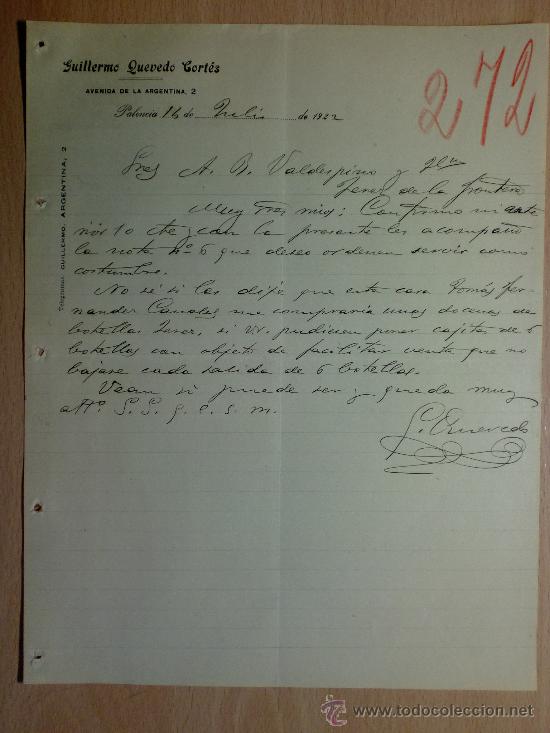 Guillermo Quevedo Cortés
AVENIDA DE LA ARGENTINA, 2
272
Palencia 14 de Julio de 1922
Telegramas: GUILLERMO. ARGENTINA, 2
Sres A. R. Valdespino y Hno
Jerez de la frontera
Muy Sres mios: Confirmo mi ante
rior 10 cte y con la presente les acompaño
la nota nº 6 que deseo ordenen servir como
costumbre.
No sé si les dije que esta casa Tomás Fer-
nandez Canales me compraria unas docenas de
botellas Jerez, si VV. pudiesen poner cajitas de 6
botellas con objeto de facilitar venta que no
bajase cada salida de 6 botellas.
Vean si puede ser y queda muy
attº S. S. q. e. s. m.
G. Quevedo
todocoleccion
www.todocoleccion.net